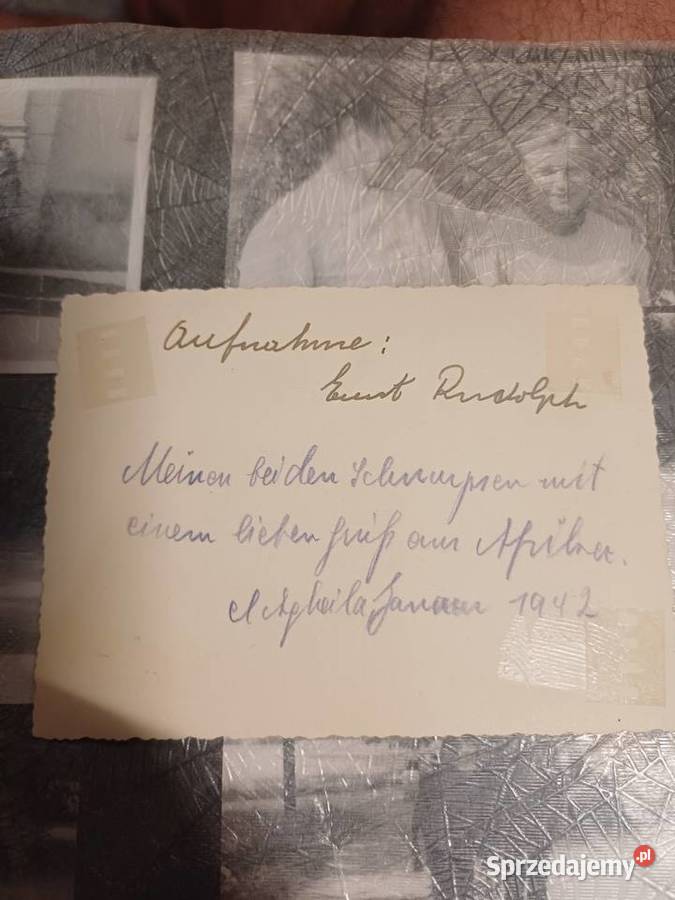 Aufnahme:
Ernst Rudolph
Meinen beiden Schnurpsen mit
einem lieben Gruß aus Afrika.
El Agheila Januar 1942
Sprzedajemy.pl